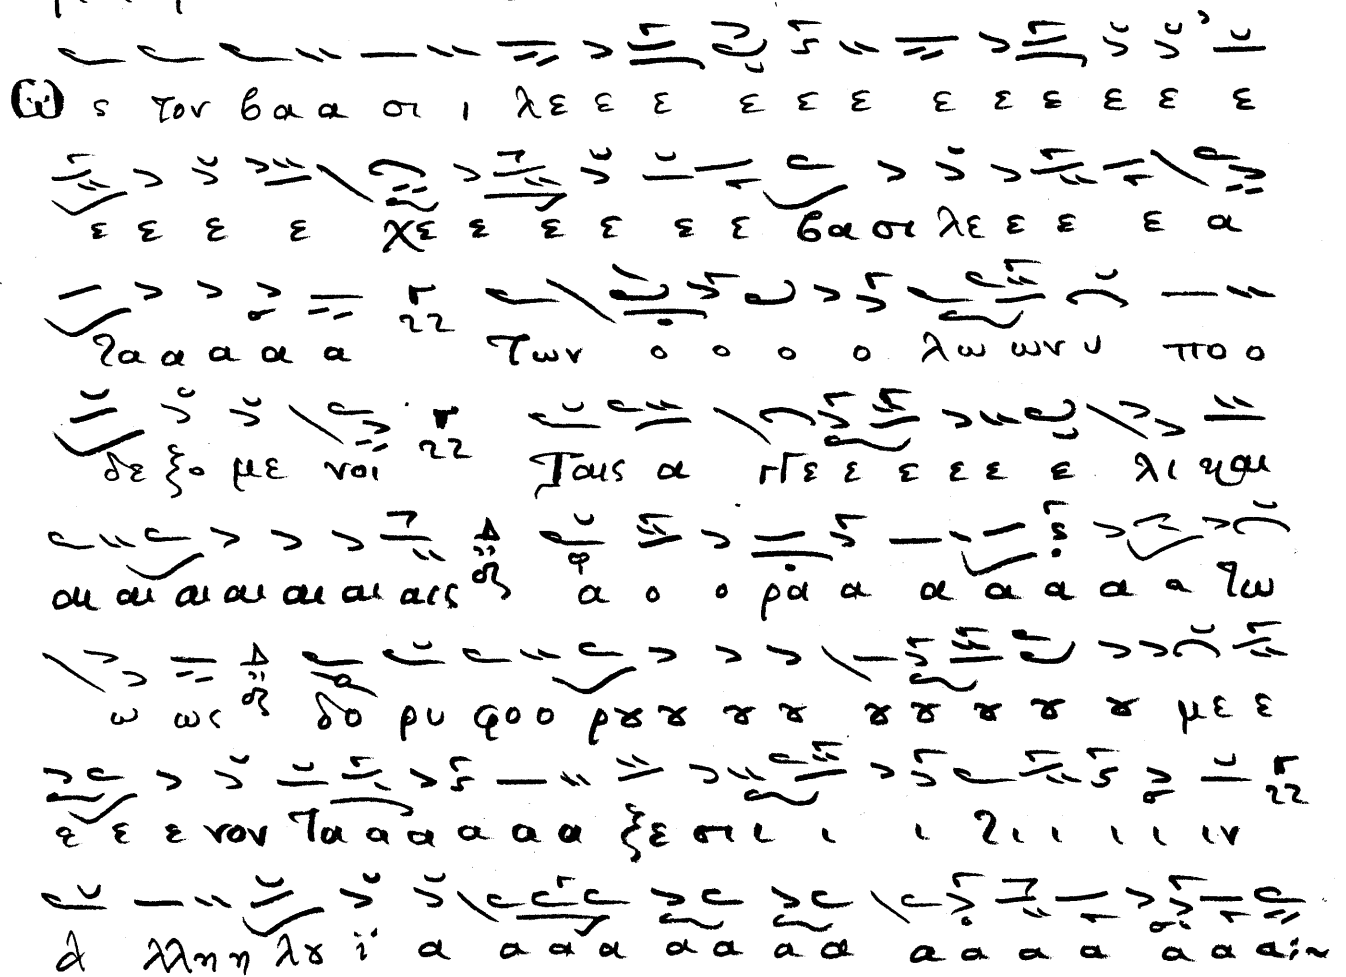 ὡ ς τον βα α σι ι λε ε ε ε ε ε ε ε ε ε ε ε
ε ε ε ε χε ε ε ε ε ε βα σι λε ε ε ε α
τα α α α α των ο ο ο ο λω ων υ πο ο
δε ξο με νοι Ταις α γγε ε ε ε ε ε λι και
αι αι αι αι αι αι αις α ο ο ρα α α α α α α τω
ω ως δο ρυ φο ο ρου ου ου ου ου ου ου ου ου με ε
ε ε ε νον Τα α α α α α ξε σι ι ι ι τι ι ι ι ι ιν
α λλη η λου ϊ α α α α α α α α α α α α α α α